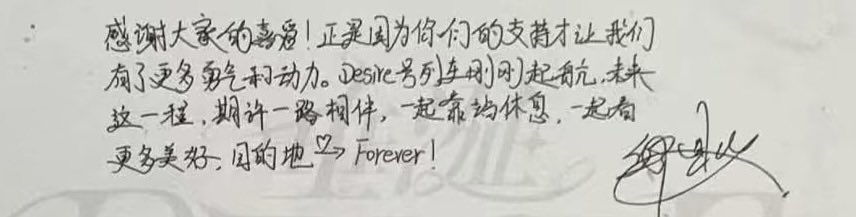 感谢大家的喜爱！正是因为你们的支持才让我们
有了更多勇气和动力。Desire号列车刚刚起航，未来
这一程，期许一路相伴，一起靠站休息，一起看
更多美好，目的地♡→ Forever！